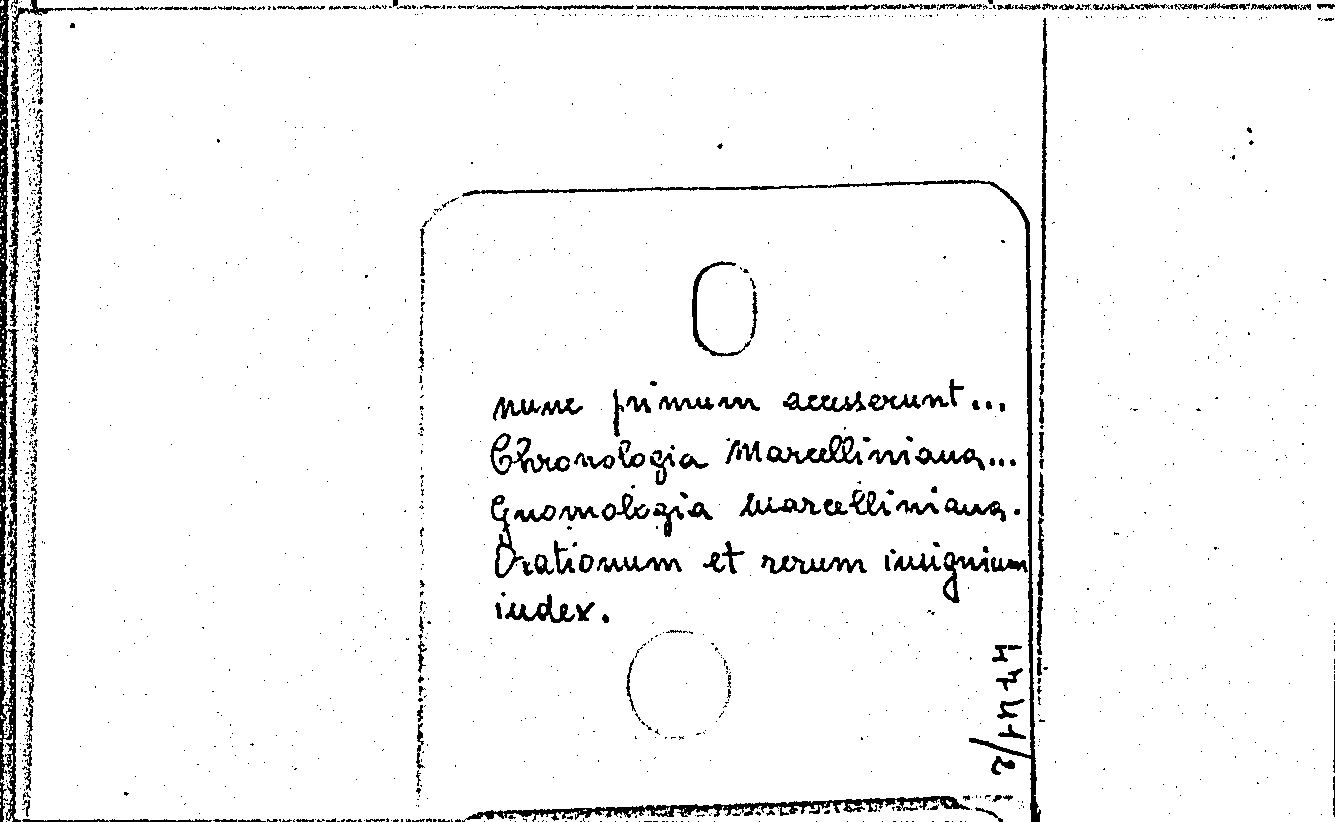 nunc primum accesserunt...
Chronologia Marcelliniana...
Gnomologia Marcelliniana.
Orationum et rerum insignium
index.